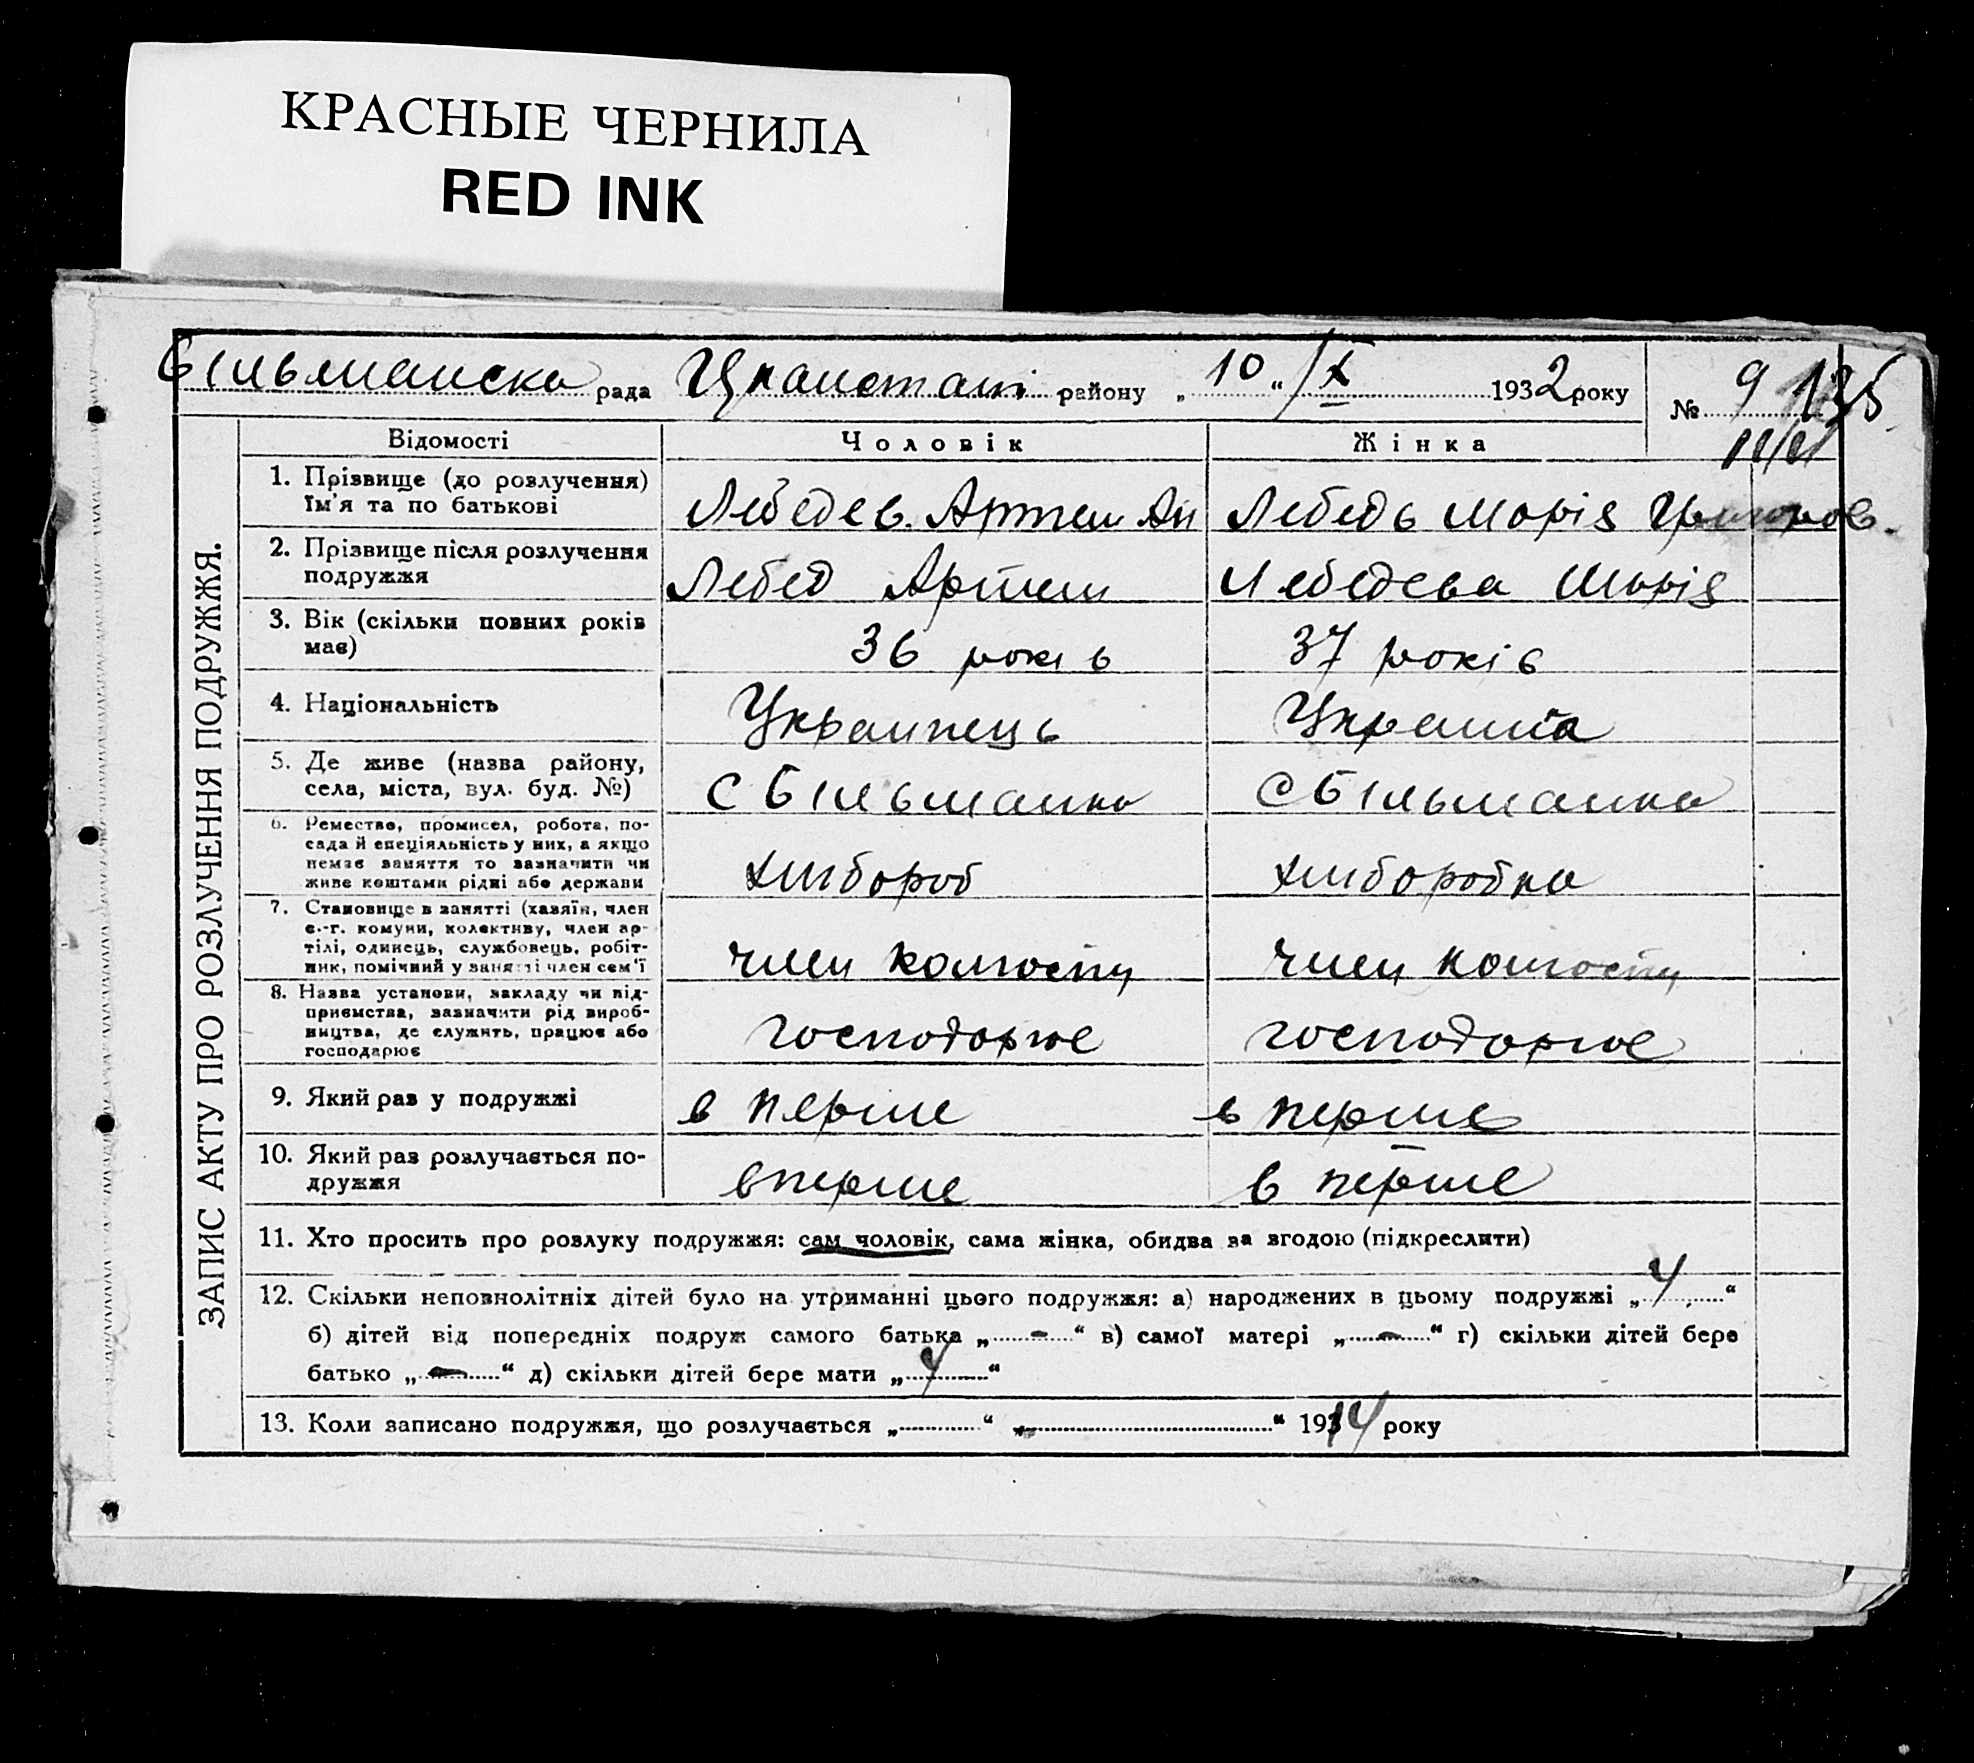 КРАСНЫЕ ЧЕРНИЛА
RED INK
Більманска рада району „ 10 “ /X 1932 року № 9 135
ЗАПИС АКТУ ПРО РОЗЛУЧЕННЯ ПОДРУЖЖЯ.
Відомості Чоловік Жінка
1. Прізвище (до розлучення) Ім'я та по батькові
Лебедев. Артем Ан Лебедь Марія
2. Прізвище після розлучення подружжя
Лебед Артем Лебедева Марія
3. Вік (скільки повних років має)
36 років 37 років
4. Національність
Украинець Украинка
5. Де живе (назва району, села, міста, вул. буд. №)
С Більманка С Більманка
6. Ремество, промисел, робота, посада й спеціяльність у них, а якщо немає заняття то зазначити чи живе коштами рідні або держави
хлибороб хлиборобка
7. Становище в занятті (хазяїн, член с.-г. комуни, колективу, член артілі, одинець, службовець, робітник, помічний у занятті член сем'ї
член колгоспу член колгоспу
8. Назва установи, закладу чи підприємства, зазначити рід виробництва, де служить, працює або господарює
господарює господарює
9. Який раз у подружжі
в перше в перше
10. Який раз розлучається подружжя
вперше в перше
11. Хто просить про розлуку подружжя: сам чоловік, сама жінка, обидва за згодою (підкреслити)
12. Скільки неповнолітніх дітей було на утриманні цього подружжя: а) народжених в цьому подружжі „ 4 “
б) дітей від попередніх подруж самого батька „ - “ в) самої матері „ - “ г) скільки дітей бере
батько „ - “ д) скільки дітей бере мати „ 4 “
13. Коли записано подружжя, що розлучається „ “ “ 1914 року